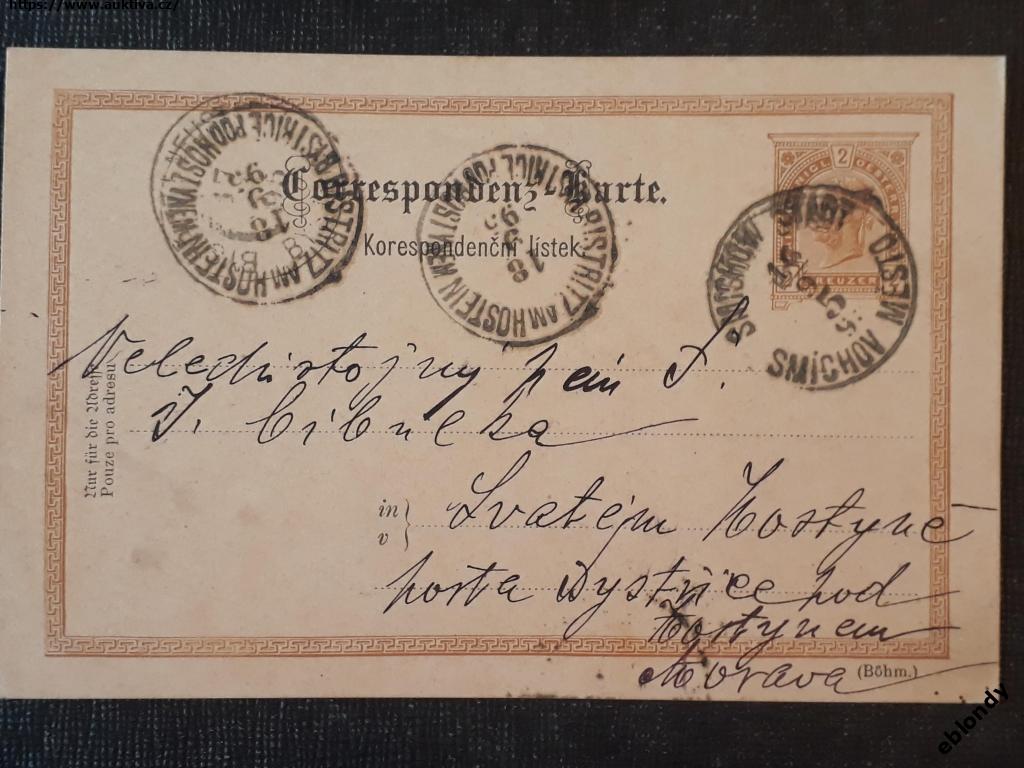 https://www.auktiva.cz/
Correspondenz-Karte.
Korespondenční lístek.
2
KREUZER
BISTRITZ AM HOSTEIN
BYSTRICE POD HOSTÝNEM
18
95
BISTRITZ AM HOSTEIN
BYSTRICE POD HOSTÝNEM
18
95
SMICHOW STADT
SMÍCHOV MĚSTO
Nur für die Adresse.
Pouze pro adresu.
Veledůstojný pán P.
T. Cibulka
in
v
Svatém Hostýně
pošta Bystřice pod
Hostýnem
Morava
(Böhm.)
eblondy